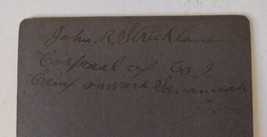 John. R Strickland
Corporal of Co I
Camp onward Savannah